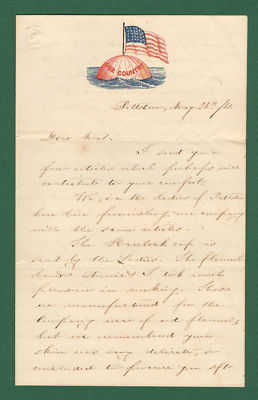 OUR COUNTRY
May 26th/61.
Dear
I send you a
few articles which perhaps will
contribute to your comfort.
We, i.e. the ladies of
have been furnishing our company
with the same articles.
The Havelock cap is
sent by the Ladies. The flannel
I took much
pleasure in making. Those
we manufactured for the
Company were of red flannel,
but we remembered your
skin was very delicate, so
concluded to procure you soft